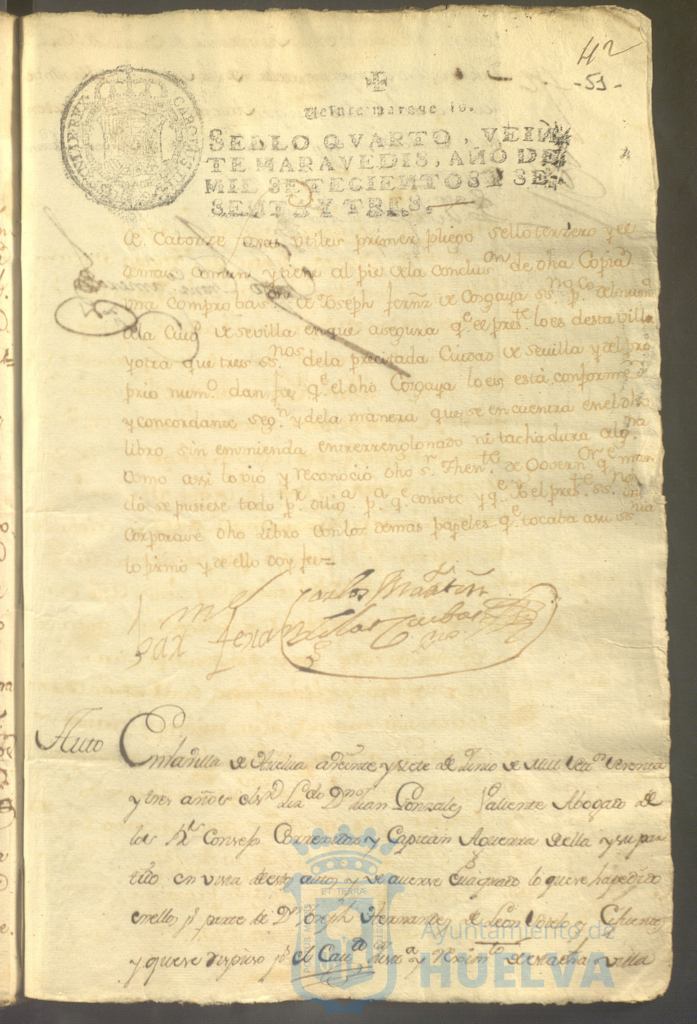 42
-53-
Veinte maraved is.
SELLO QVARTO, VEIN
TE MARAVEDIS, AÑO DE
MIL SETECIENTOS Y SE-
SENTA Y TRES.
CAROLVS
de Catorze foxas utiles primer pliego sello terzero y el
demas Comun, y tiene al pie de la Concluson de dha Copia
una comprobaon de Joseph fernz de Corgaya ssno pco del num
de la Ciud de sevilla en que asegura qe el preste lo es desta villa
y otra que tres ssnos de la precitada Ciudad de Sevilla y del pro
prio numo dan fee qe el dho Corgaya lo es, está conforme
y concordante segn y de la manera que se encuentra en el dho
libro, sin enmienda entrerrenglonado ni tachadura algna
como assi lo vió y reconoció dho sr Thente de Governor qe man
do se pusiese todo pr dilixa pa qe conste y qe Yo el preste ssno in
corporase dho Libro con los demas papeles qe tocava a su
lo firmo y de ello doy fee=
Carlos Martin
Auto
En la Villa de Huelva a Veinte y siete de Junio de mill setes sesenta
y tres años el sr Lizdo Dn Juan Gonzales Valiente Abogado de
los Rs Consejos Correxidor y Capitan Aguerra della y su par
tido en vista destos autos y de averse evaquado lo que se ha pedido
en ellos pr parte de Dn Joseph Hernandez de Leon
y que se dispuso pr el Cavdo Justa y Reximto de esta dha Villa
ET TERRAE
Ayuntamiento de
HUELVA